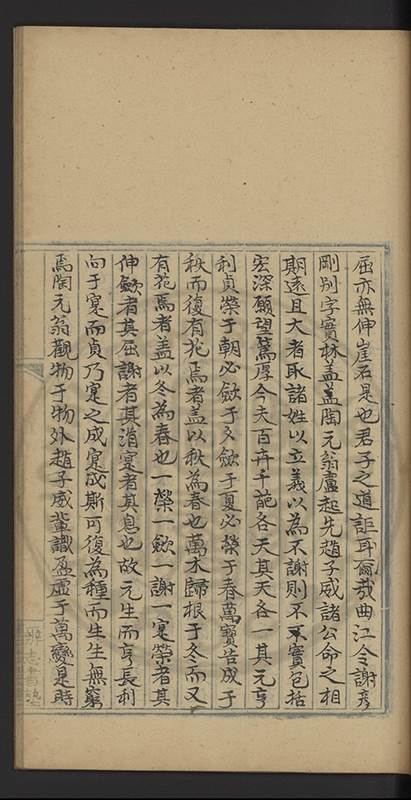 屈亦無伸崖石是也君子之道詎耳爾哉曲江令謝彥
剛別字實林蓋蓋陶元翁盧起先趙子威諸公命之相
期遠且大者取諸姓以立義以為不謝則不實包括
宏深願望篤厚今夫百卉千葩各天其天各一其元亨
利貞榮于朝必歛于夕歛于夏必榮于春萬寶告成于
秋而復有花焉者蓋以秋為春也萬木歸根于冬而又
有花焉者蓋以冬為春也一榮一歛一謝一寔榮者其
伸歛者其屈謝者其消寔者其息也故元生而亨長利
向于寔而貞乃寔之成寔成斯可復為種而生生無窮
焉陶元翁觀物于物外趙子威輩識盈虛于萬變是時